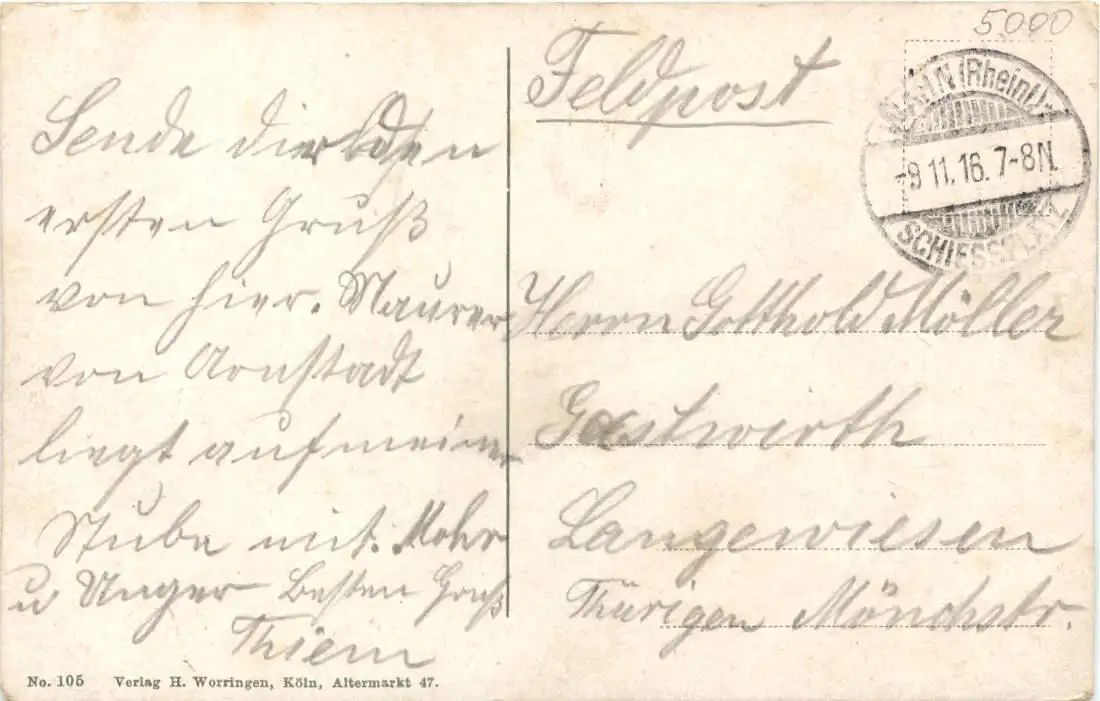 5000
Feldpost
WAHN (Rheinl)
-9 11.16. 7-8N.
SCHIESSPLATZ
Sende dir den
ersten Gruß
von hier. Maurer
von Arnstadt
liegt auf meiner
Stube mit. Mohr
u Unger Besten Gruß
Thiem
Herrn Gotthold Möller
Gastwirth
Langewiesen
Thürigen Mönchstr.
No. 105 Verlag H. Worringen, Köln, Altermarkt 47.